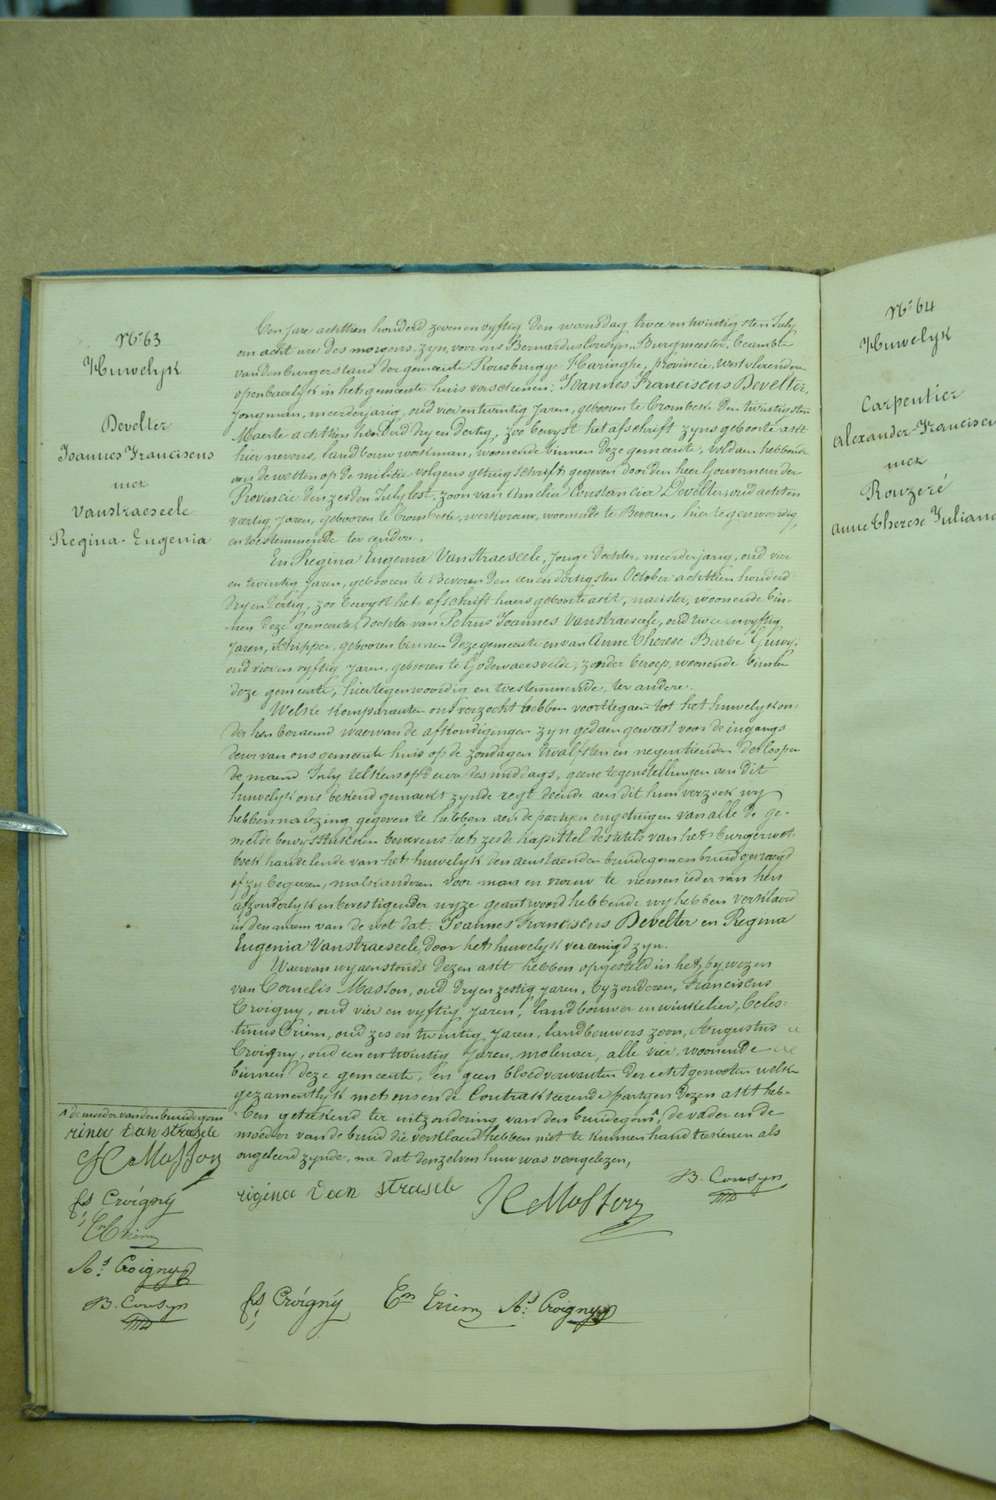 N.r 63
Huwelyk
Develter
Joannes Franciscus
met
Vanstraeseele
Regina-Eugenia
Den jare achttien honderd zeven en vyftig den woensdag twee en twintigsten July
om acht ure des morgens, zyn voor ons Bernardus Cousyn, Burgmeester, beambte
van den burgerstand der gemeente Rousbrugge-Haringhe, provincie West-vlaenderen
openbaerlyk in het gemeente huis verschenen: Joannes Franciscus Develter,
jongman, meerderjarig, oud vier en twintig jaren, gebooren te Crombeke den twintigsten
Maerte achttien honderd dry en dertig, zoo bewyst het afschrift zyns geboorte akt
hier nevens, landbouw werkman, woonende binnen deze gemeente, voldaen hebbende
aen de wetten op de militie volgens getuigschrift gegeven door den heer Gouverneur der
Provincie den zesden July lest, zoon van Amelia Constancia Develter, oud achten
veertig jaren, gebooren te Crombeke, werkvrouw, woonende te Beveren, hier tegenwoordig
en toestemmende ter eendere.
En Regina Eugenia Vanstraeseele, jonge dochter, meerderjarig, oud vier
en twintig jaren, gebooren te Beveren den een en dertigsten October achttien honderd
dry en dertig, zoo bewyst het afschrift haers geboorte akt, naeister, woonende bin-
nen deze gemeente, dochter van Petrus Joannes Vanstraeseele, oud twee en vyftig
jaren, schipper, gebooren binnen deze gemeente en van Anne Therese Barbe
oud vier en vyftig jaren, gebooren te Godewaersvelde, zonder beroep, woonende binnen
deze gemeente, hier tegenwoordig en toestemmende, ter andere.
Welke komparanten ons verzocht hebben voorttegaen tot het huwelyk on-
der hen beraemd waervan de afkondigingen zyn gedaen geweest voor de ingangs
deur van ons gemeente huis op de zondagen twaelfsten en negentienden der loopen
de maend July telkens op d'ure des middags, geene tegenstellingen aen dit
huwelyk ons bekend gemaekt zynde regt doende aen dit hun verzoek wy
hebben na lezing gegeven te hebben aen de partyen en getuigen van alle de ge-
melde bewysstukken benevens het zesde kapittel des titels van het burgerwet-
boek handelende van het huwelyk den aenstaenden bruidegom en bruid gevraegd
of zy begeeren, malkanderen voor man en vrouw te nemen ieder van hen
afzonderlyk en bevestigender wyze geantwoord hebbende wy hebben verklaerd
in den naem van de wet dat Joannes Franciscus Develter en Regina
Eugenia Vanstraeseele, door het huwelyk vereenigd zyn.
Waervan wy aenstonds dezen akt hebben opgesteld in het bywezen
van Cornelis Masson, oud dry en zestig jaren, byzonderen, Franciscus
Croigny, oud vier en vyftig jaren, landbouwer en winkelier, Celes-
tinus Criem, oud zes en twintig jaren, landbouwers zoon, Augustus
Croigny, oud een en twintig jaren, molenaer, alle vier, woonende
binnen deze gemeente, en geen bloedverwanten der echtgenooten welke
gezamentlyk met ons en de Contrakteerende partyen dezen akt heb-
ben geteekend ter uitzondering van den bruidegom^, de vader en de
moeder van de bruid die verklaerd hebben niet te kunnen hand teekenen als
ongeleerd zynde, na dat den zelven hun was voorgelezen,
^ de moeder van den bruidegom
rina van strasele
JC Masson
fs Croigny
En Criem
As. Croigny
B. Cousyn
rigina van strasele
JC Masson
B. Cousyn
fs Croigny
En Criem
As. Croigny
N.r 64
Huwelyk
Carpentier
Alexander Franciscu
met
Rouzeré
Anne Therese Juliana